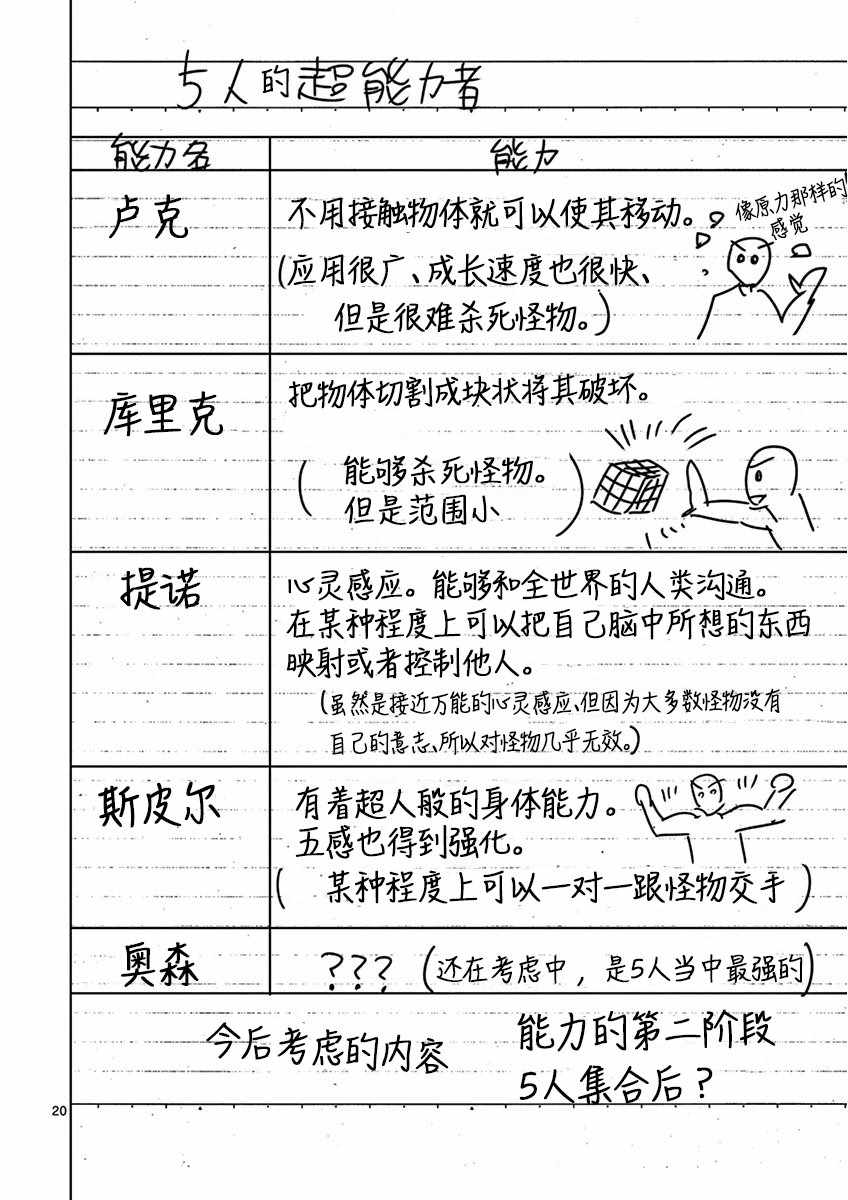 5人的超能力者
能力名
能力
卢克
不用接触物体就可以使其移动。
像原力那样的
感觉
(应用很广、成长速度也很快、
但是很难杀死怪物。)
库里克
把物体切割成块状将其破坏。
(能够杀死怪物。
但是范围小)
提诺
心灵感应。能够和全世界的人类沟通。
在某种程度上可以把自己脑中所想的东西
映射或者控制他人。
(虽然是接近万能的心灵感应、但因为大多数怪物没有
自己的意志、所以对怪物几乎无效。)
斯皮尔
有着超人般的身体能力。
五感也得到强化。
(某种程度上可以一对一跟怪物交手)
奥森
???(还在考虑中，是5人当中最强的)
今后考虑的内容
能力的第二阶段
5人集合后?
20